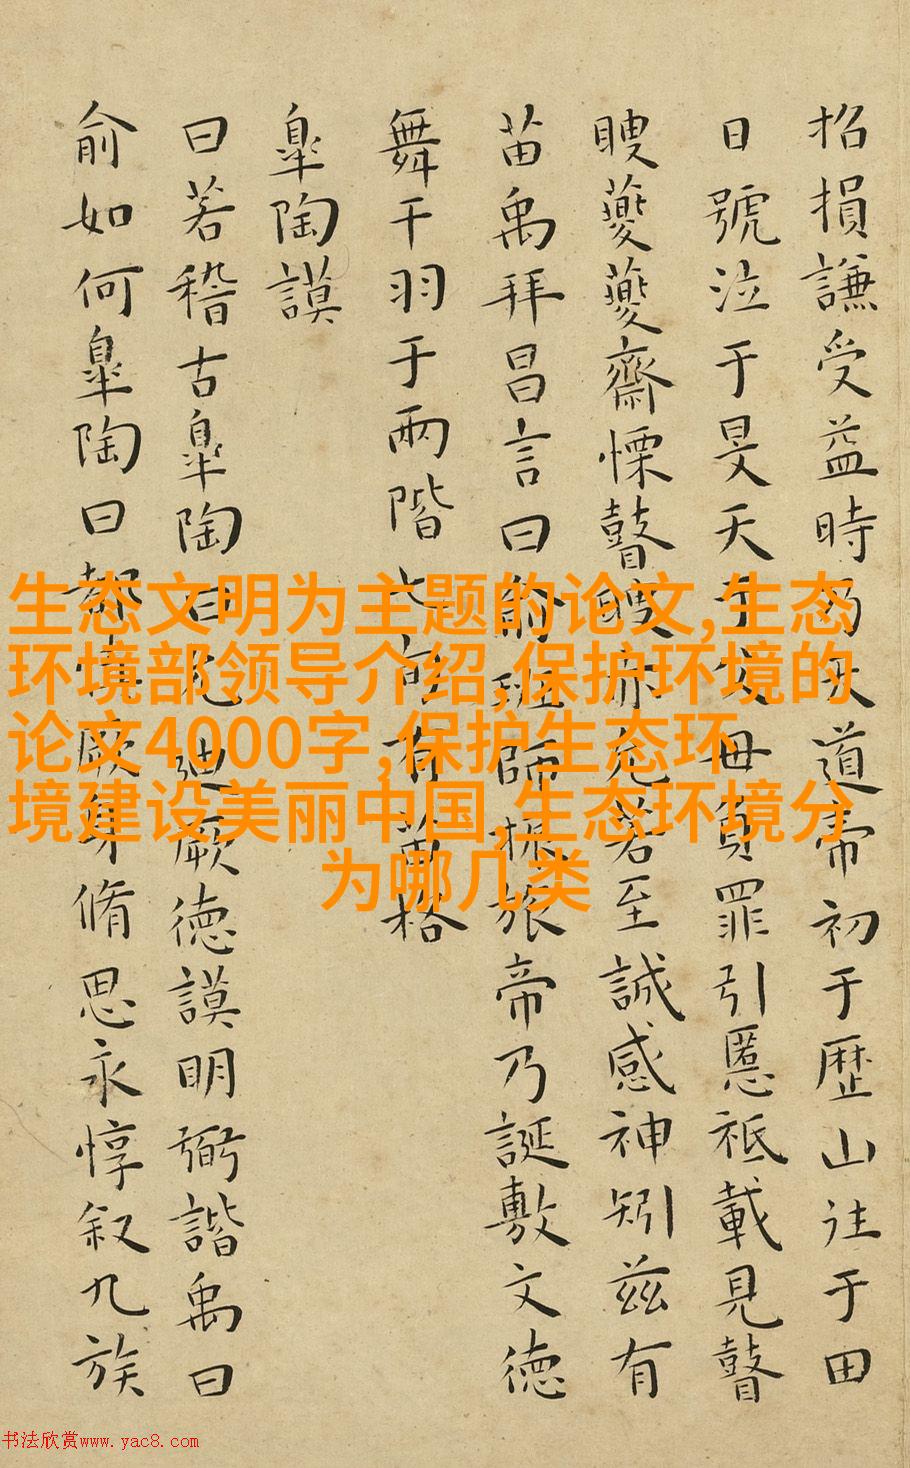 招損謙受益時乃天道帝初于歷山往于田
日號泣于旻天于父母負罪引慝祗載見瞽
瞍夔夔齋慄瞽瞍亦允若至誠感神矧茲有
苗禹拜昌言曰俞班師振旅帝乃誕敷文德
舞干羽于兩階七旬有苗格
皐陶謨
曰若稽古皐陶曰允迪厥德謨明弼諧禹曰
俞如何皐陶曰都慎厥身脩思永惇叙九族
生态文明为主题的论文,生态
环境部领导介绍,保护环境的
论文4000字,保护生态环
境建设美丽中国,生态环境分
为哪几类
书法欣赏www.yac8.com